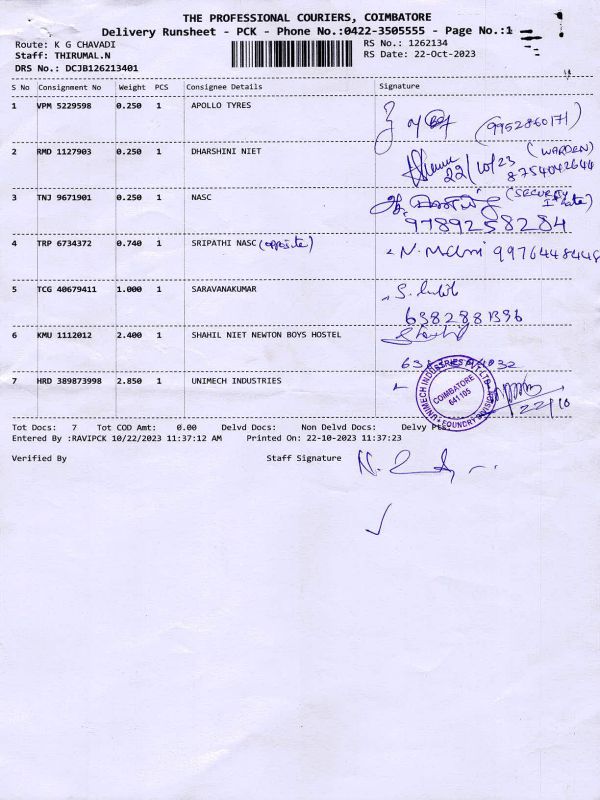 THE PROFESSIONAL COURIERS, COIMBATORE
Delivery Runsheet - PCK - Phone No.:0422-3505555 - Page No.:1
Route: K G CHAVADI
RS No.: 1262134
Staff: THIRUMAL.N
RS Date: 22-Oct-2023
DRS No.: DCJB126213401
S No Consignment No Weight PCS Consignee Details Signature
1 VPM 5229598 0.250 1 APOLLO TYRES
(9952860171)
2 RMD 1127903 0.250 1 DHARSHINI NIET (WARDEN)
22/10/23 8754042644
3 TNJ 9671901 0.250 1 NASC (SECURITY
9789258284
4 TRP 6734372 0.740 1 SRIPATHI NASC (opposite) N. Mani 9976448448
5 TCG 40679411 1.000 1 SARAVANAKUMAR
6382881396
6 KMU 1112012 2.400 1 SHAHIL NIET NEWTON BOYS HOSTEL
7 HRD 389873998 2.850 1 UNIMECH INDUSTRIES
UNIMECH INDUSTRIES PVT LTD
COIMBATORE
641 105
FOUNDRY DIVISION
22/10
Tot Docs: 7 Tot COD Amt: 0.00 Delvd Docs: Non Delvd Docs: Delvy Pts:
Entered By :RAVIPCK 10/22/2023 11:37:12 AM Printed On: 22-10-2023 11:37:23
Verified By Staff Signature